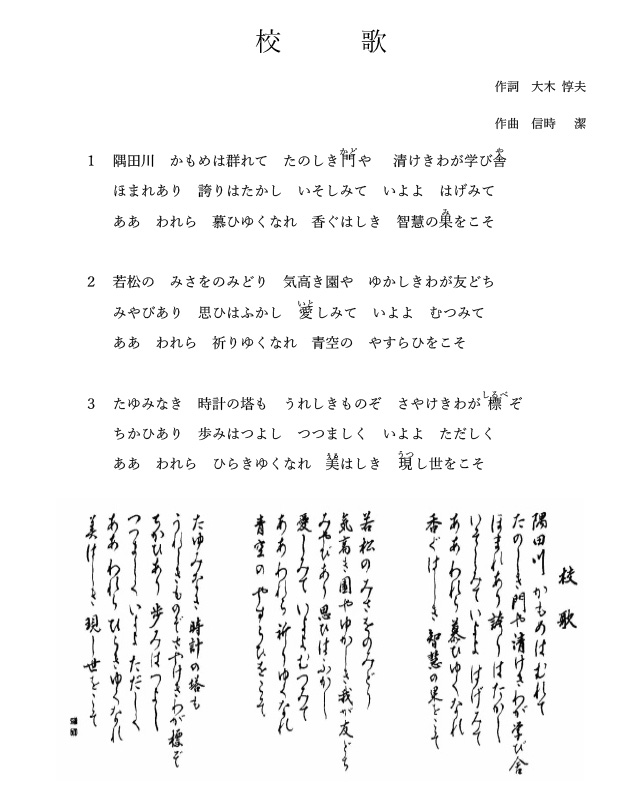 校　歌
作詞　大木 惇夫
作曲　信時　潔
1　隅田川　かもめは群れて　たのしき門や　清けきわが学び舎
ほまれあり　誇りはたかし　いそしみて　いよよ　はげみて
ああ　われら　慕ひゆくなれ　香ぐはしき　智慧の果をこそ
2　若松の　みさをのみどり　気高き園や　ゆかしきわが友どち
みやびあり　思ひはふかし　愛しみて　いよよ　むつみて
ああ　われら　祈りゆくなれ　青空の　やすらひをこそ
3　たゆみなき　時計の塔も　うれしきものぞ　さやけきわが標ぞ
ちかひあり　歩みはつよし　つつましく　いよよ　ただしく
ああ　われら　ひらきゆくなれ　美はしき　現し世をこそ
校歌
隅田川 かもめはむれて
たのしき門や清けきわが学び舎
ほまれあり誇りはたかし
いそしみていよよはげみて
ああわれら慕ひゆくなれ
香ぐはしき智慧の果をこそ
若松のみさをのみどり
気高き園やゆかしき我が友どち
みやびあり思ひはふかし
愛しみていよよむつみて
ああわれら祈りゆくなれ
青空のやすらひをこそ
たゆみなき時計の塔も
うれしきものぞさやけきわが標ぞ
ちかひあり歩みはつよし
つつましくいよよただしく
ああわれらひらきゆくなれ
美はしき現し世をこそ